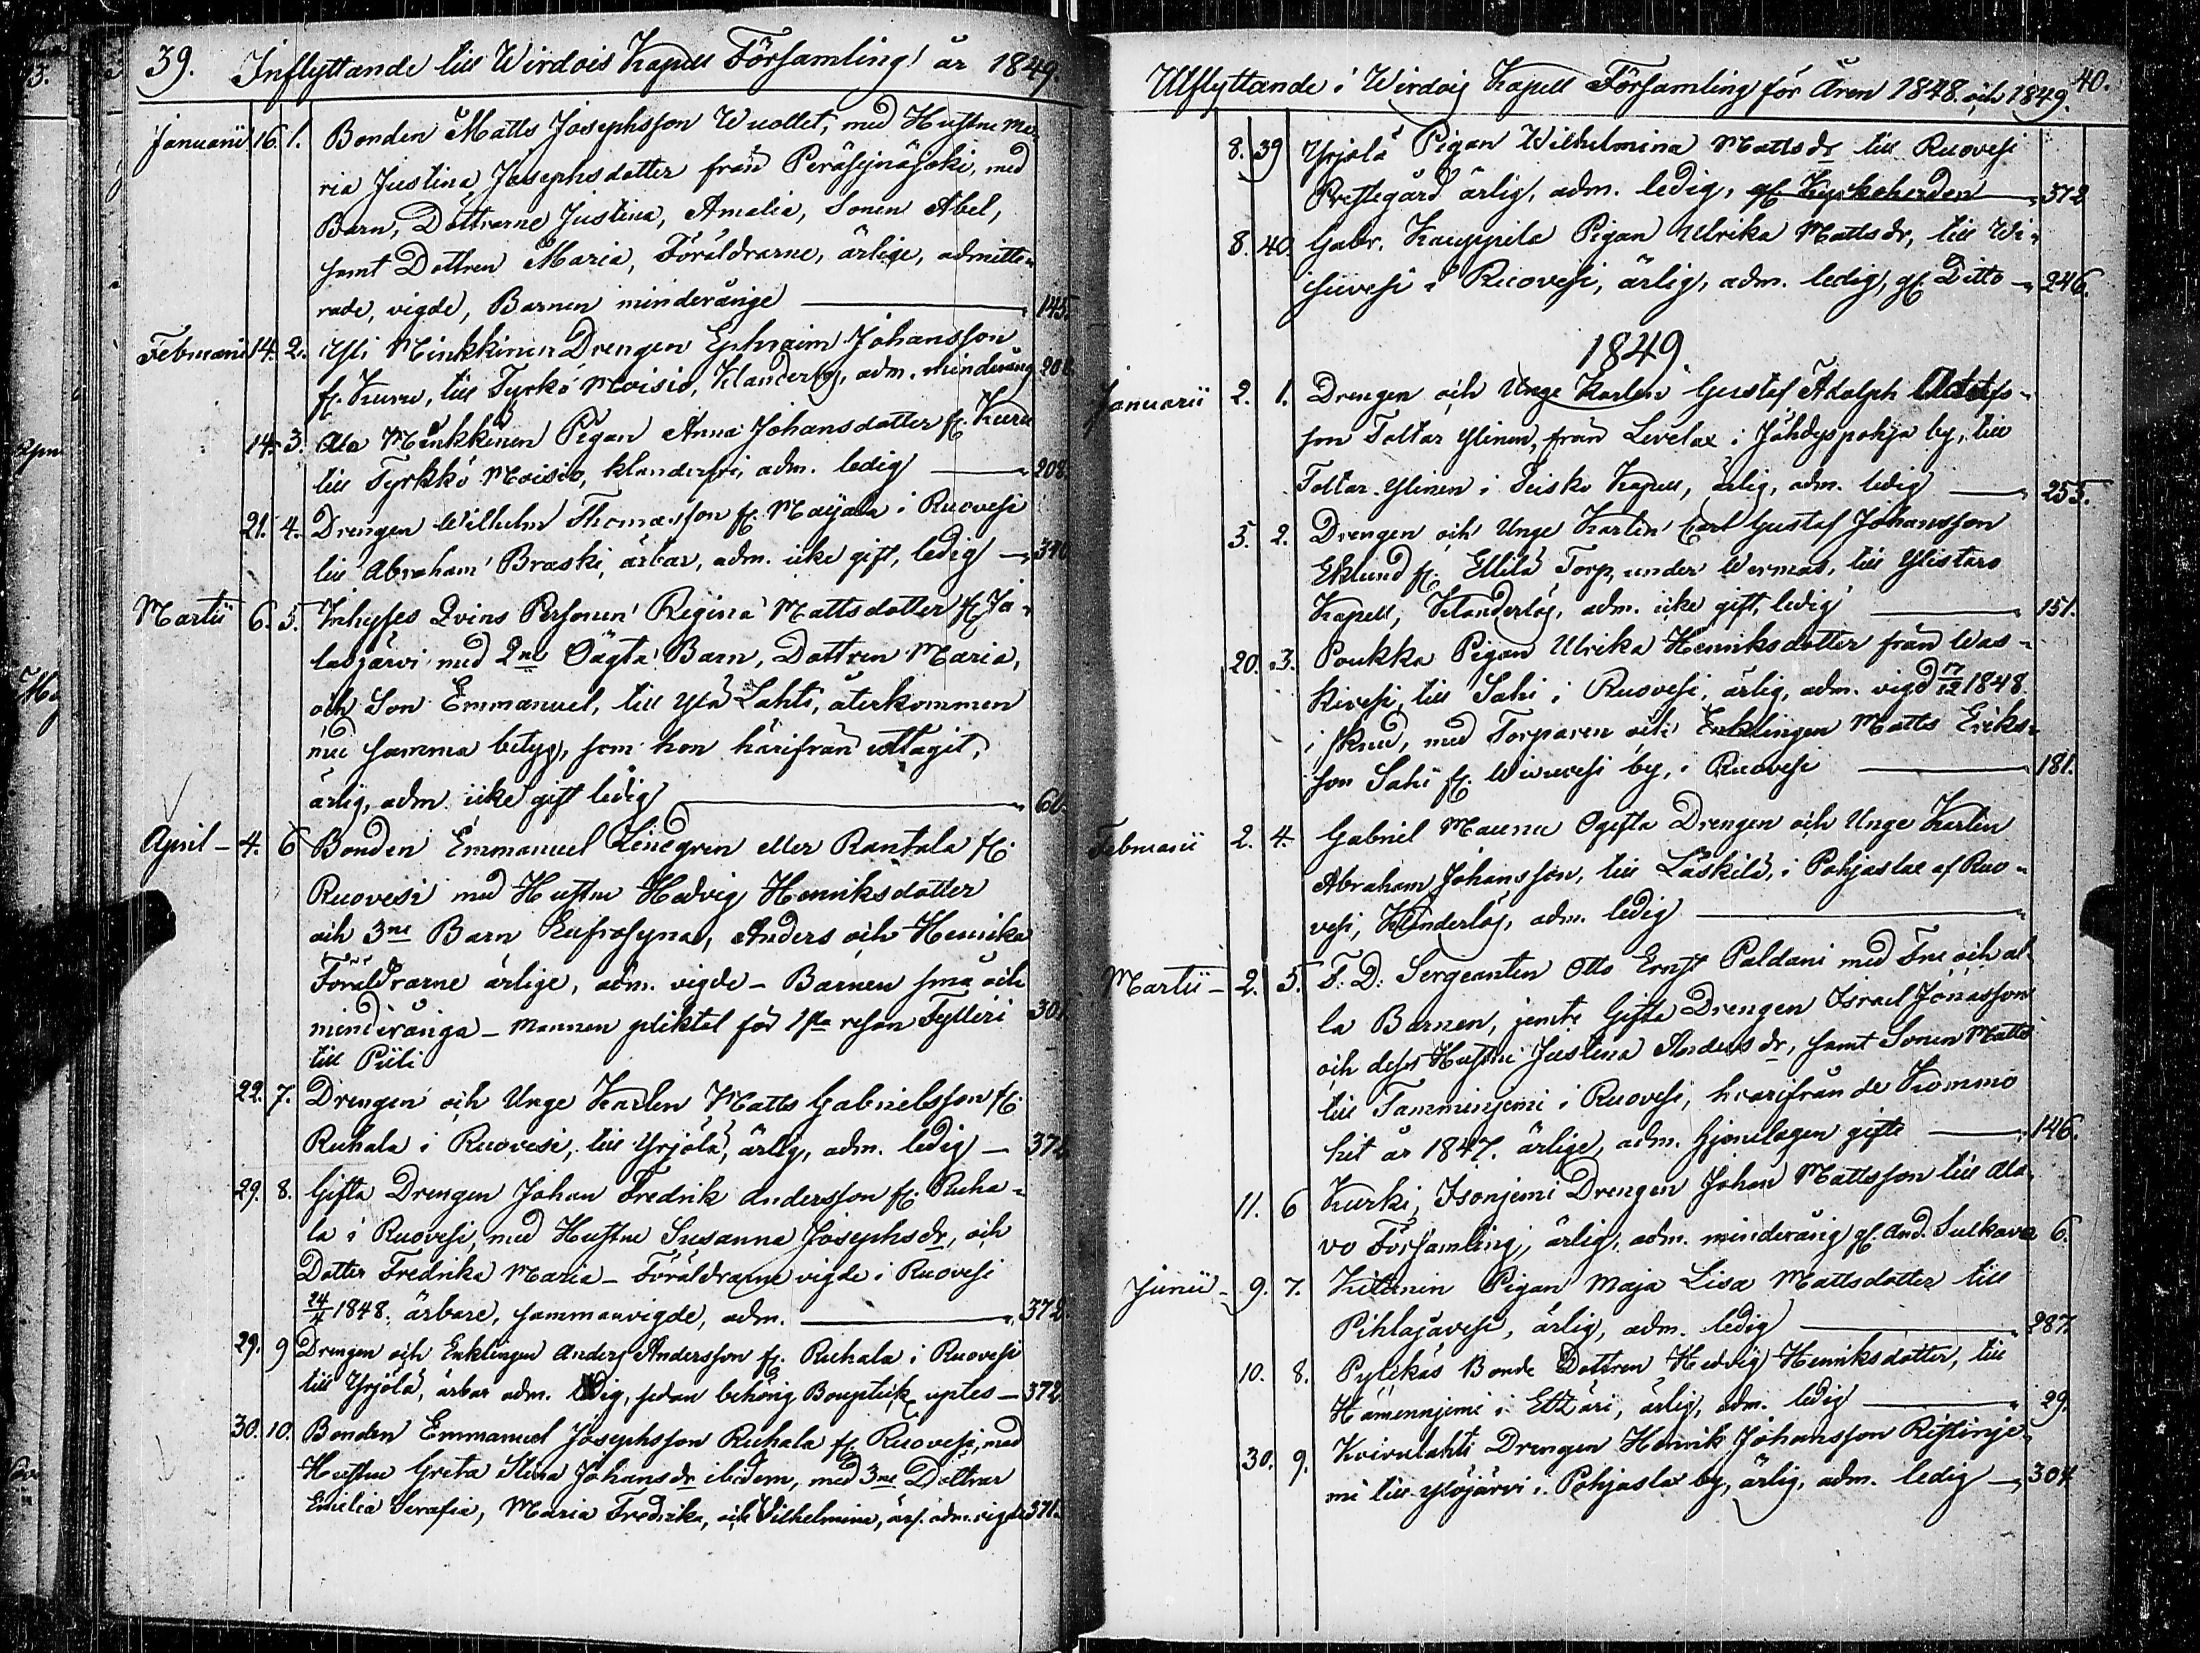 39. Inflyttande till Wirdois Kapell Församling år 1849.
Januarii 16. 1. Bonden Matts Josephsson Wuollet, med Hustru Ma-
ria Justina Josephsdotter från Peräsejnäjoki, med
Barn, Döttrarne Justina, Amalia, Sonen Abel,
samt Dottren Maria, Föräldrarne, ärlige, admitte-
rade, vigde, Barnen minderårige 145.
Februarii 14. 2. Yli Minkkinen Drengen Ephraim Johansson
fr. Kuru, till Tyrkö Moisio, Klanderlös, adm. minderårig 208.
14. 3. Ala Minkkinen Pigan Anna Johansdotter fr. Kuru
till Tyrkkö Moisio, klanderfri, adm. ledig 208.
21. 4. Drengen Wilhelm Thomasson fr. Mayala i Ruovesi
till Abraham Braski, ärbar, adm. icke gift, ledig 340
Martii 6. 5. Inhyses Qvins Personen Regina Mattsdotter fr. Ja-
lasjärvi med 2ne Oägta Barn, Dottren Maria,
och Son Emmanuel, till Ylä Lahti, återkommen
med samma betyg, som hon härifrån uttagit,
ärlig, adm. icke gift ledig 60.
April 4. 6 Bonden Emmanuel Lindgren eller Rantala fr.
Ruovesi med Hustru Hedvig Henriksdotter
och 3ne Barn Eufrosyna, Anders och Henrika
Föräldrarne ärlige, adm. vigde - Barnen små och
minderåriga - Mannen pliktat för 1sta resan Fylleri 301
till Piili
22. 7. Drengen och Unge Karlen Matts Gabrielsson fr.
Ruhala i Ruovesi, till Yrjölä, ärlig, adm. ledig 372
29. 8. Gifta Drengen Johan Fredrik Andersson fr. Ruha-
la i Ruovesi, med Hustru Susanna Josephsdr, och
Dotter Fredrika Maria - Föräldrarne vigde i Ruovesi
24/4 1848. ärbare, sammanvigde, adm. 372.
29. 9 Drengen och Enklingen Anders Andersson fr. Ruhala i Ruovesi
till Yrjölä, ärbar adm. ledig, sedan behörig Bouptek. uptes 372
30. 10. Bonden Emmanuel Josephsson Ruhala fr. Ruovesi, med
Hustru Greta Stina Johansdr ibidem, med 3ne Döttrar
Emelia Serafia, Maria Fredrika, och Wilhelmina, ärl. adm. vigde 371.
Utflyttande i Wirdois Kapell Församling för Åren 1848. och 1849. 40.
8. 39 Yrjölä Pigan Wilhelmina Mattsdr till Ruovesi
Prestegård ärlig, adm. ledig, gf. Kyrkoherden 372
8. 40. Gabr. Kauppila Pigan Ulrika Mattsdr, till Wi-
suvesi i Ruovesi, ärlig, adm. ledig, gf. Ditto 246.
1849
Januarii 2. 1. Drengen och Unge Karlen Gustaf Adolph
son Toltar Ylinen, från Levelax i Jähdyspohja by, till
Toltar Ylinen i Teisko Kapell, ärlig, adm. ledig 253.
5. 2. Drengen och Unge Karlen Carl Gustaf Johansson
Eklund fr. Ellilä Torp, under Wermas, till Ylistaro
Kapell, Klanderlös, adm. icke gift, ledig 151.
20. 3. Poukka Pigan Ulrika Henriksdotter från Was-
kivesi, till Sahi i Ruovesi, ärlig, adm. vigd 17/12 1848.
i sknd, med Torparen och Enklingen Matts Eriks-
son Sahi fr. Wisuvesi by, i Ruovesi 181.
Februarii 2. 4. Gabriel Maunu Ogifta Drengen och Unge Karlen
Abraham Johansson, till Läskilä, i Pohjaslax af Ruo-
vesi, Klanderlös, adm. ledig
Martii 2. 5. F. D. Sergeanten Otto Ernst Paldani med Fru och al-
la Barnen, jemte Gifta Drengen Israel Jonasson
och dess Hustru Justina Andersdr, samt Sonen Matts
till Tamminjemi i Ruovesi, hvarifrån de Kommo
hit år 1847. ärlige, adm. Hjonelagen gifte 146.
11. 6 Kurki, Isonjemi Drengen Johan Mattsson till Ala
vo Församling, ärlig, adm. minderårig gf. And. Sulkava 6.
Junii 9. 7. Kitunen Pigan Maja Lisa Mattsdotter till
Pihlajavesi, ärlig, adm. ledig 287
10. 8. Pylckäs Bonde Dottren Hedvig Henriksdotter, till
Hämennjemi i Etzäri, ärlig, adm. ledig 29.
30. 9. Koivulahti Drengen Henrik Johansson Ristinje-
mi till Ylöjärvi i Pohjaslax by, ärlig, adm. ledig 304